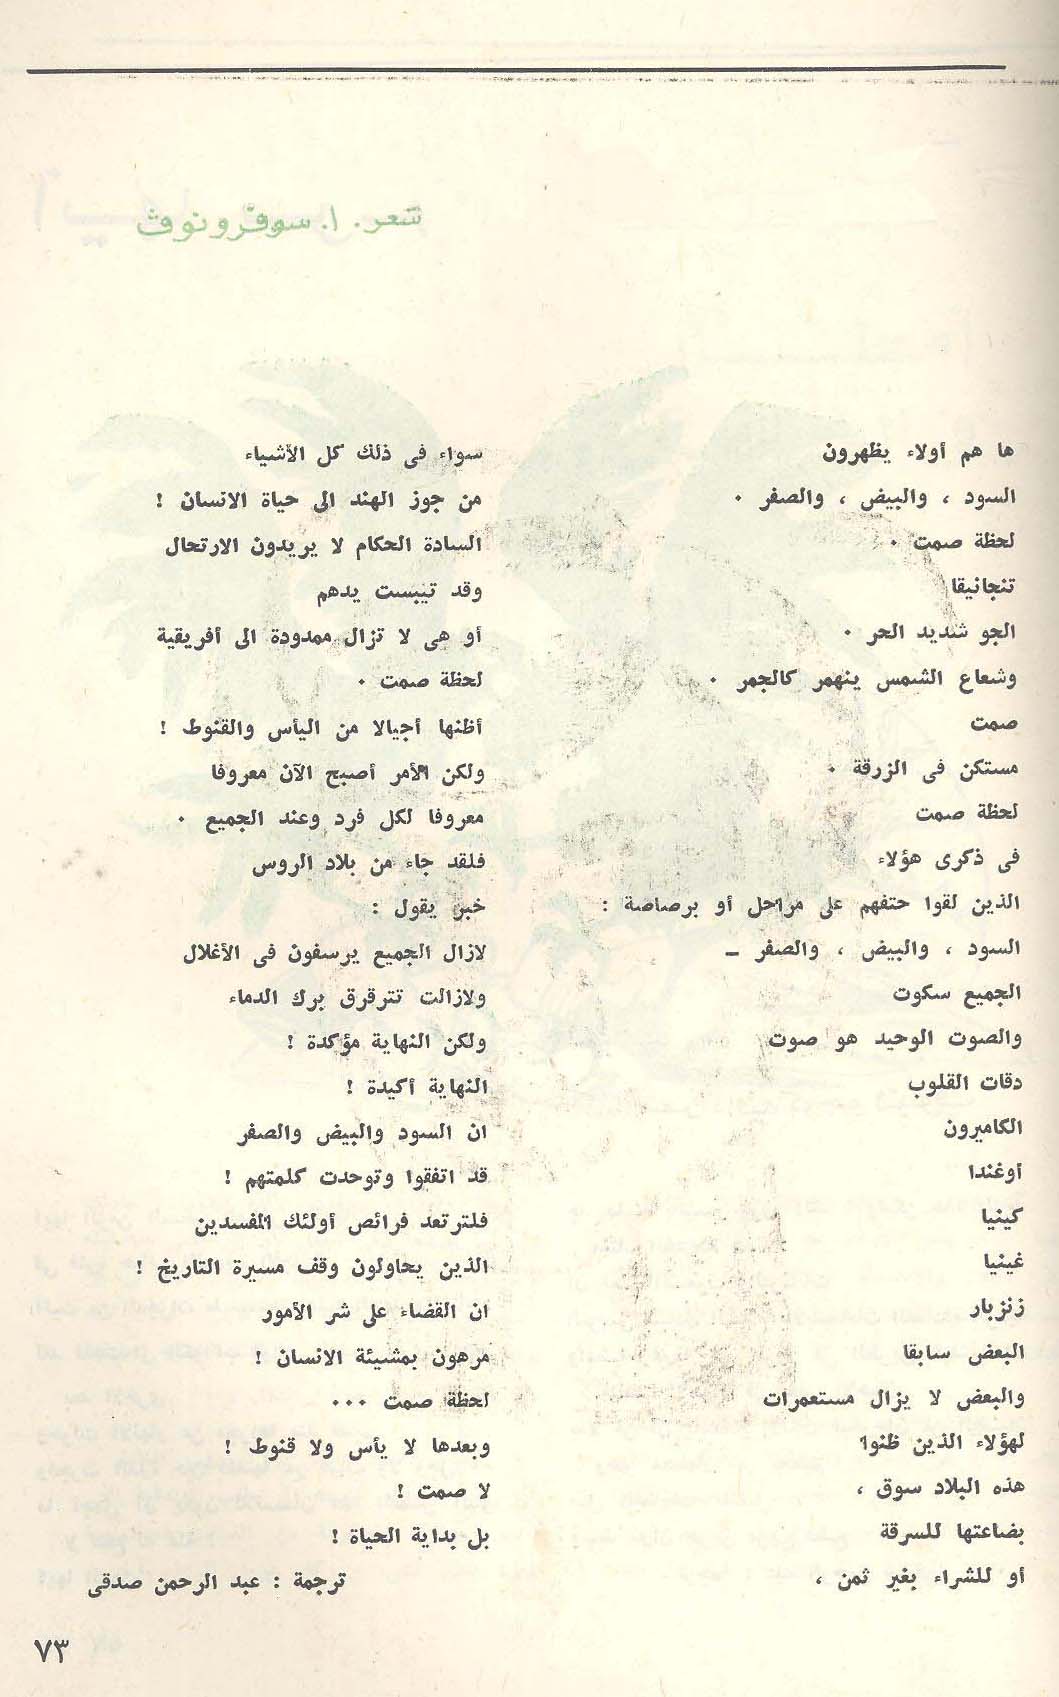 شعر. ا. سوفرونوف
ها هم أولاء يظهرون
السود ، والبيض ، والصفر ٠
لحظة صمت ٠
تنجانيقا
الجو شديد الحر ٠
وشعاع الشمس ينهمر كالجمر ٠
صمت
مستكن فى الزرقة ٠
لحظة صمت
فى ذكرى هؤلاء
الذين لقوا حتفهم على مراحل أو برصاصة :
السود ، والبيض ، والصفر ــ
الجميع سكوت
والصوت الوحيد هو صوت
دقات القلوب
الكاميرون
أوغندا
كينيا
غينيا
زنزبار
البعض سابقا
والبعض لا يزال مستعمرات
لهؤلاء الذين ظنوا
هذه البلاد سوق ،
بضاعتها للسرقة
أو للشراء بغير ثمن ،
سواء فى ذلك كل الأشياء
من جوز الهند الى حياة الانسان !
السادة الحكام لا يريدون الارتحال
وقد تيبست يدهم
أو هى لا تزال ممدودة الى أفريقية
لحظة صمت ٠
أظنها أجيالا من اليأس والقنوط !
ولكن الأمر أصبح الآن معروفا
معروفا لكل فرد وعند الجميع ٠
فلقد جاء من بلاد الروس
خبر يقول :
لازال الجميع يرسفون فى الأغلال
ولازالت تترقرق برك الدماء
ولكن النهاية مؤكدة !
النهاية أكيدة !
ان السود والبيض والصفر
قد اتفقوا وتوحدت كلمتهم !
فلترتعد فرائص أولئك المفسدين
الذين يحاولون وقف مسيرة التاريخ !
ان القضاء على شر الأمور
مرهون بمشيئة الانسان !
لحظة صمت ٠٠٠
وبعدها لا يأس ولا قنوط !
لا صمت !
بل بداية الحياة !
ترجمة : عبد الرحمن صدقى
٧٣